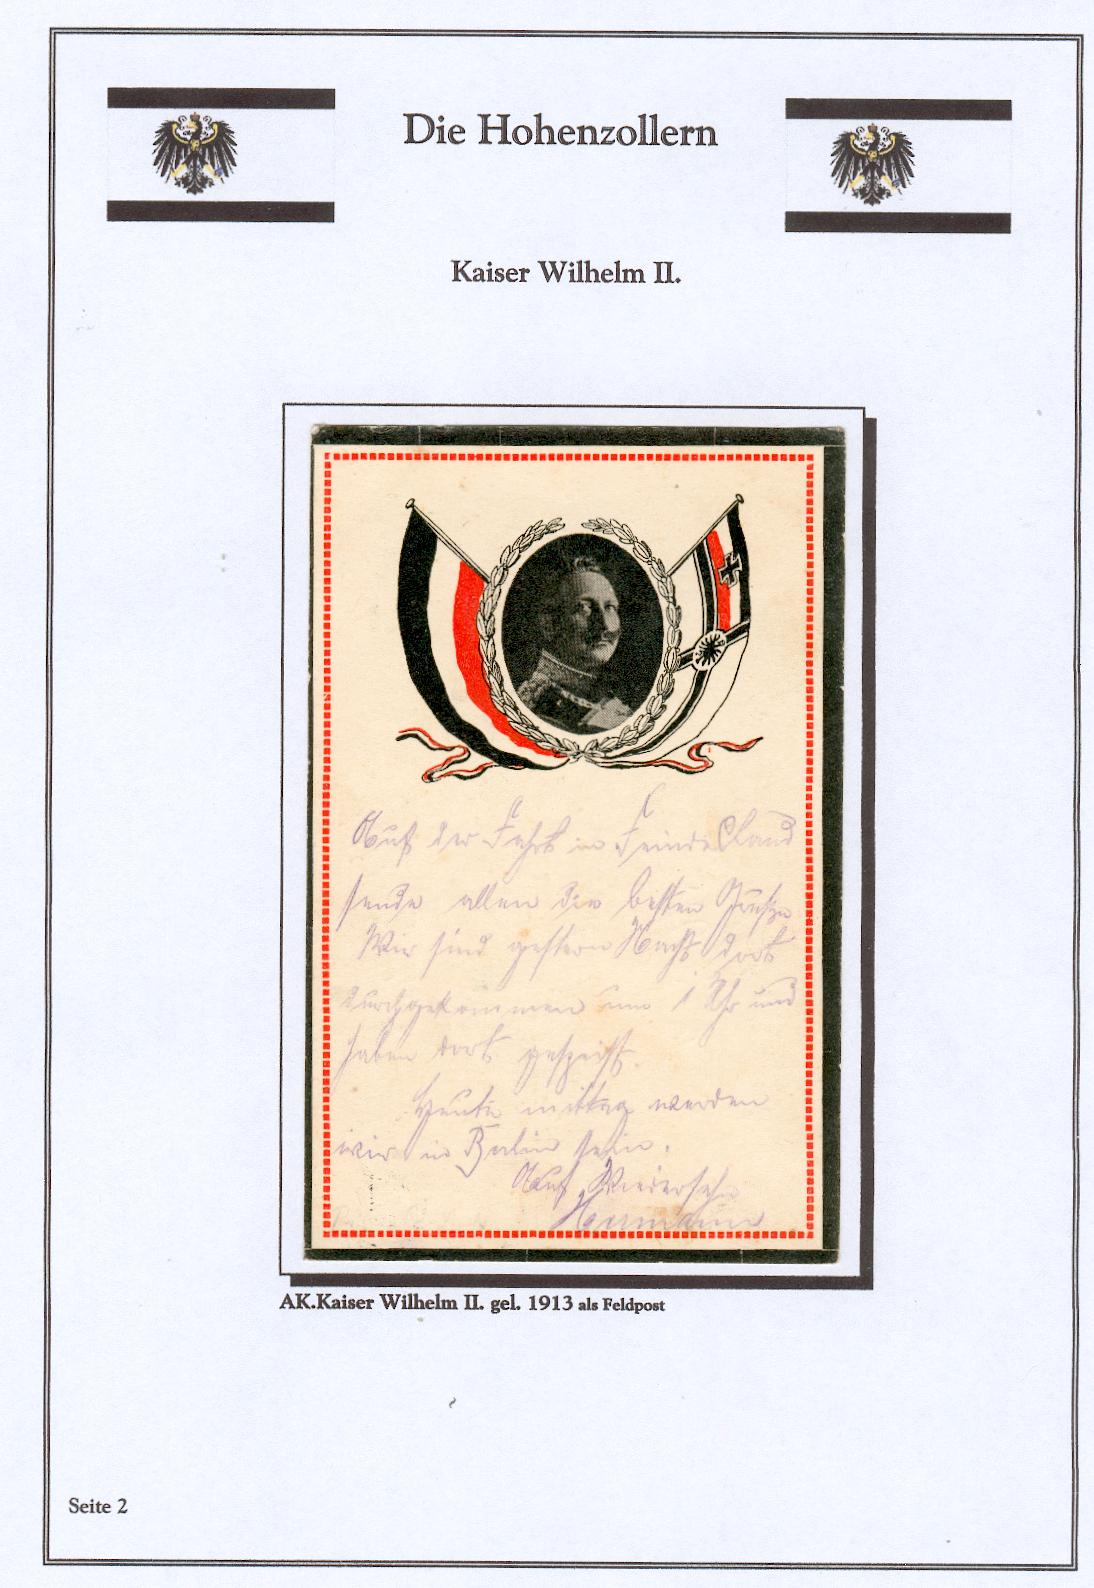 Die Hohenzollern
Kaiser Wilhelm II.
Auf der Fahrt in Feindesland
sende allen die besten Grüße
Wir sind gestern Nacht dort
durchgekommen um 1 Uhr und
haben dort gespeist.
Heute mittag werden
wir in Berlin sein.
Auf Wiedersehn
Hermann
AK.Kaiser Wilhelm II. gel. 1913 als Feldpost
Seite 2